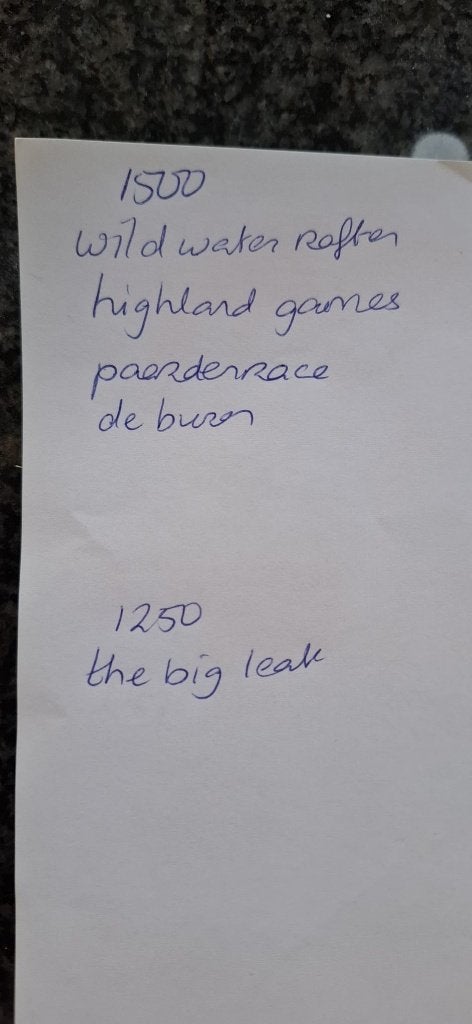 1500
wild water raften
highland games
paarderrace
de buren
1250
the big leak